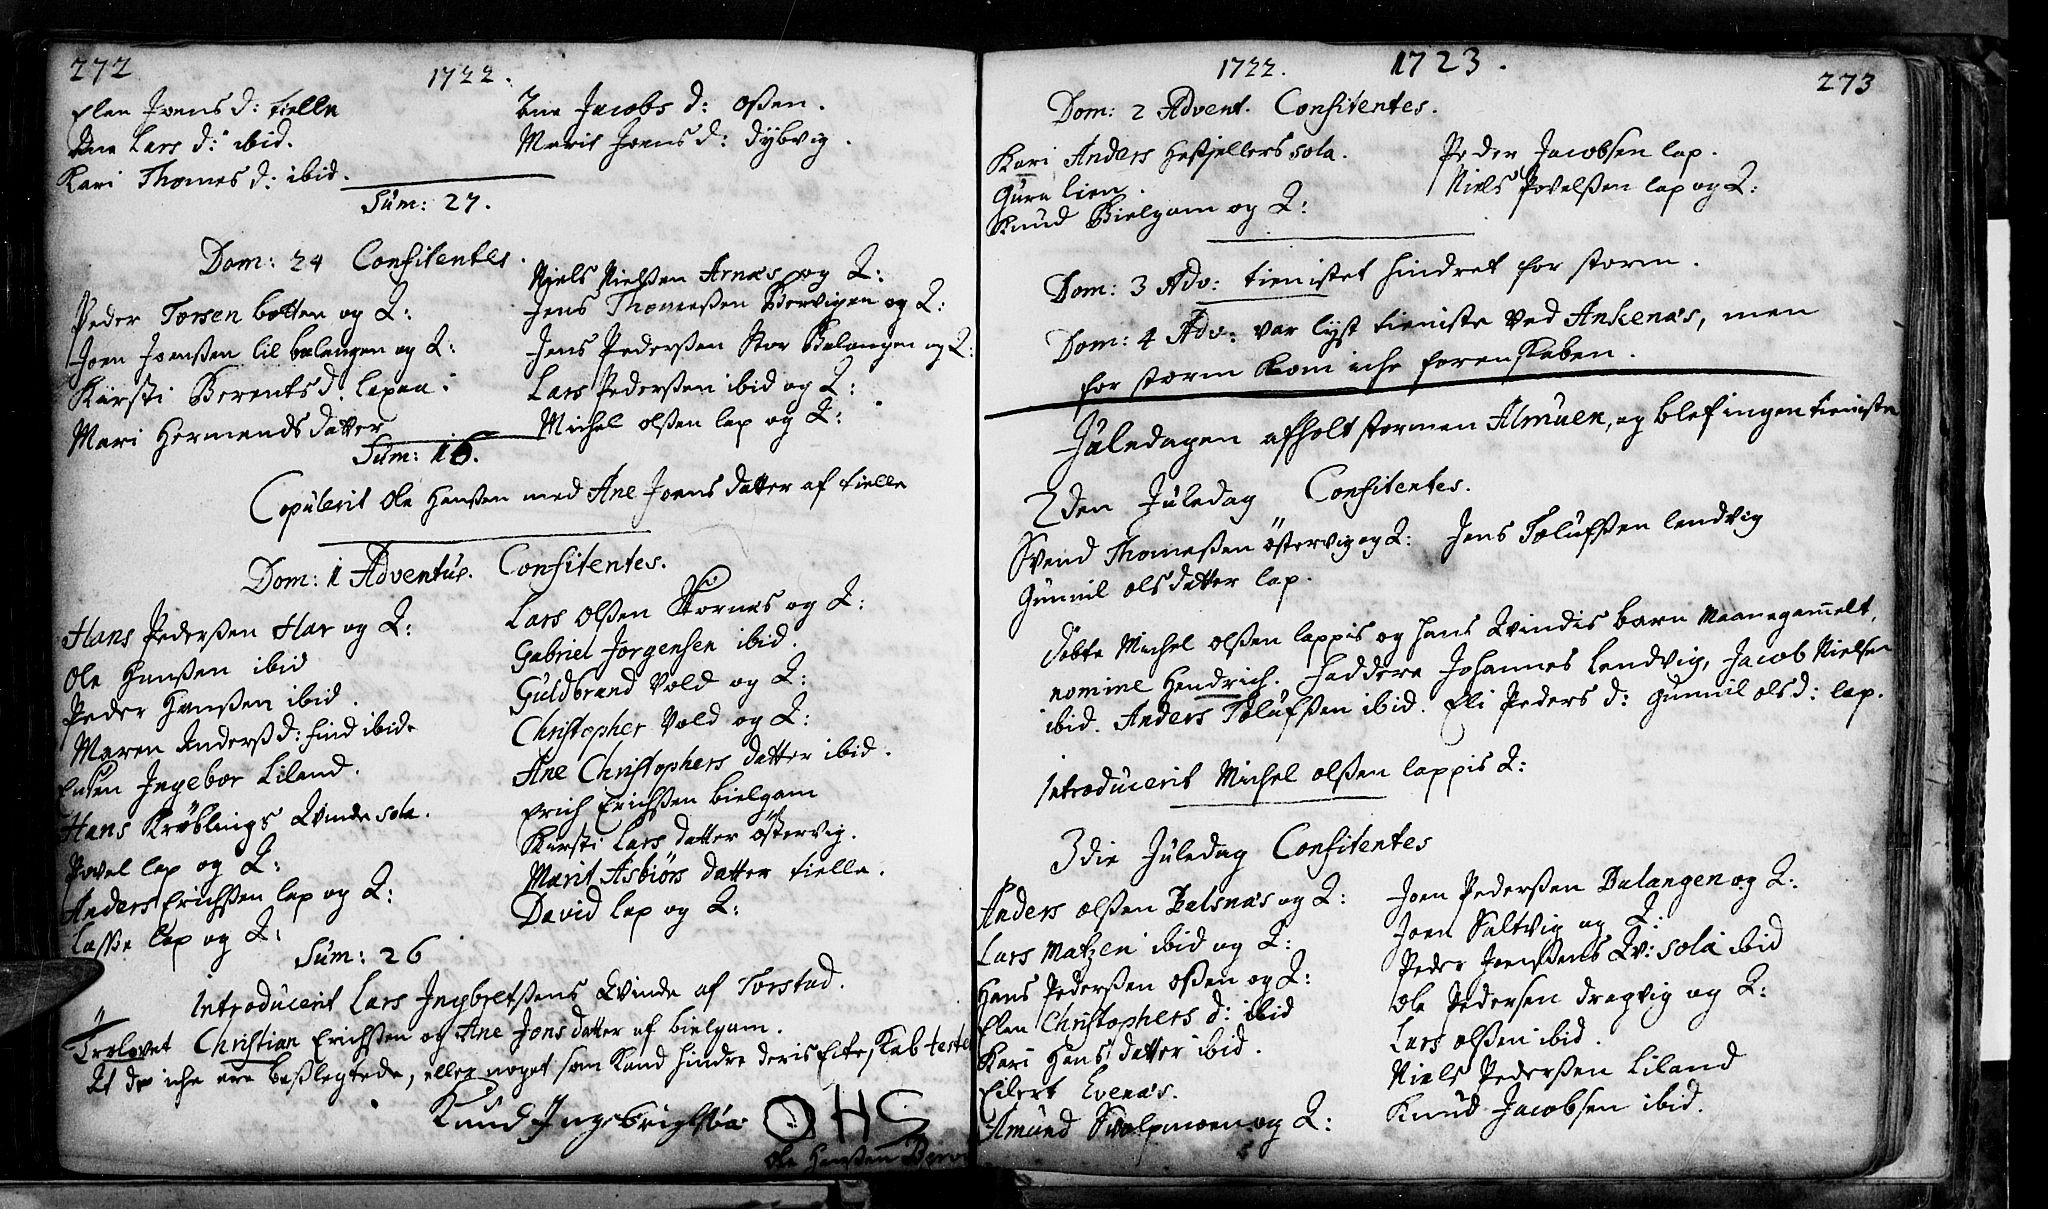 272
1722.
Elen Joens d: Fielle
Ane Lars d: ibid.
Kari Thomes d: ibid.
Ane Jacobs d: Ossen.
Marit Joens d: dybvig.
Sum: 27.
Dom: 24 Confitentes.
Peder Torsen botten og Q:
Joen Joenssen lil balangen og Q:
Kirsti Berents d: lapea:
Mari Hermands datter
Niels Nielssen Arnæs og Q:
Jens Thomessen Bervigen og Q:
Jens Pederssen Stor Balangen og Q:
Lars Pederssen ibid og Q:
Michel olssen lap og Q:
Sum: 16.
Copulerit Ole Hanssen med Ane Joens datter af Fielle
Dom: 1 Adventus. Confitentes.
Hans Pederssen Har og Q:
Ole Hanssen ibid
Peder Hanssen ibid.
Maren Anderss d: find ibid.
Enken Ingebor Liland.
Hans Krøblings Qvinde sola.
Povel lap og Q:
Anders Erichssen lap og Q:
Lasse lap og Q:
Lars olssen Stornæs og Q:
Gabriel Jørgensen ibid.
Guldbrand Vold og Q:
Christopher Vold og Q:
Ane Christophers datter ibid.
Erich Erichssen bielgam
Kirsti Lars datter østervig.
Marit Asbiørs datter Fielle.
David lap og Q:
Sum: 26
Introducerit Lars Ingbretssens Qvinde af Torstad.
Trolovet Christian Erichssen og Ane Jons datter af bielgam.
At de iche ere besslegtede, eller noget som kand hindre deris Ecteskab teste
Knud Ingebrigtsøn OHS
Ole Hanssen
1722. 1723.
273
Dom: 2 Advent. Confitentes.
Kari Anders Hesfjellers sola.
Guru lien.
Knud Bielgam og Q:
Peder Jacobsen lap.
Niels Povelssen lap og Q:
Dom: 3 Adv: tienistet hindret for storm.
Dom: 4 Adv: var lyst tieniste ved Ankenæs, men
for storm kom iche forenskaben.
Juledagen afholt stormen Almuen, og blef ingen tieniste
2den Juledag Confitentes.
Svend Thomessen østervig og Q: Jens Tolufssen lendvig
Gunnil olsdatter lap.
Døbte Michel olssen lappis og hans Qvindis barn maanegammelt,
nomine Hendrich. Faddere Johannes lendvig, Jacob Nielsen
ibid. Anders Tolufssen ibid. Eli Peders d: Gunnil ols d: lap.
Introducerit Michel olssen lappis Q:
3die Juledag Confitentes
Anders olssen Balsnæs og Q:
Lars Matzen ibid og Q:
Hans Pederssen ossen og Q:
Elen Christophers d: ibid
Kari Hans datter ibid.
Edert Evenæs.
Amund Svolpmoen og Q:
Joen Pederssen Balangen og Q:
Joen Saltvig og Q:
Peder Joenssens Qv: sola ibid
Ole Pedersen dragvig og Q:
Lars olssen ibid.
Niels Pederssen Liland
Knud Jacobsen ibid.